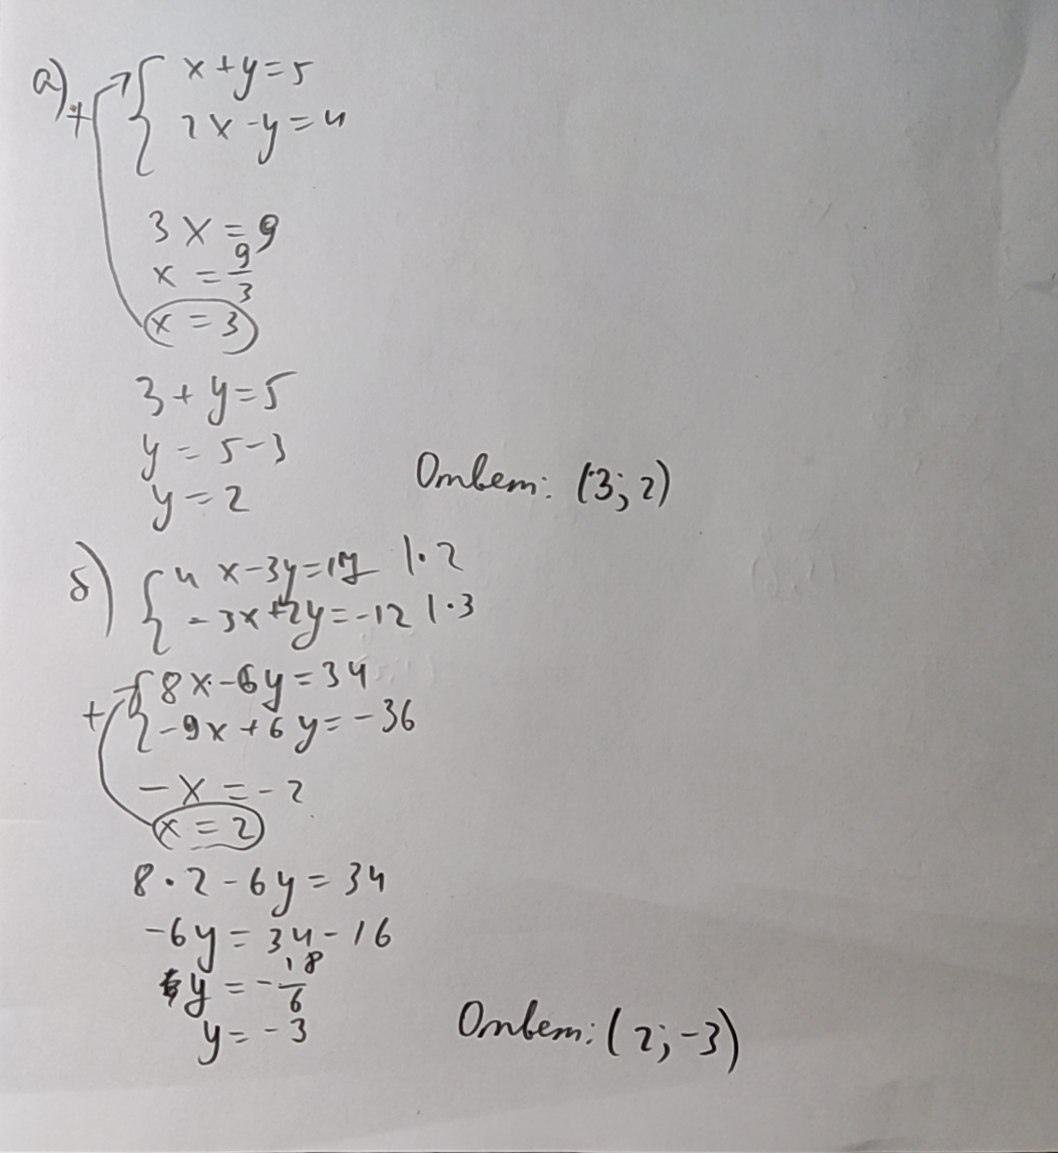 а) { x+y=5
+ 2x-y=4
3x=9
x = 9/3
x = 3
3+y=5
y = 5-3
y = 2
Ответ: (3; 2)
б) { 4x-3y=17 |·2
-3x+2y=-12 |·3
{ 8x-6y=34
+ -9x+6y=-36
-x=-2
x = 2
8·2-6y=34
-6y=34-16
y = -18/6
y = -3
Ответ: (2; -3)